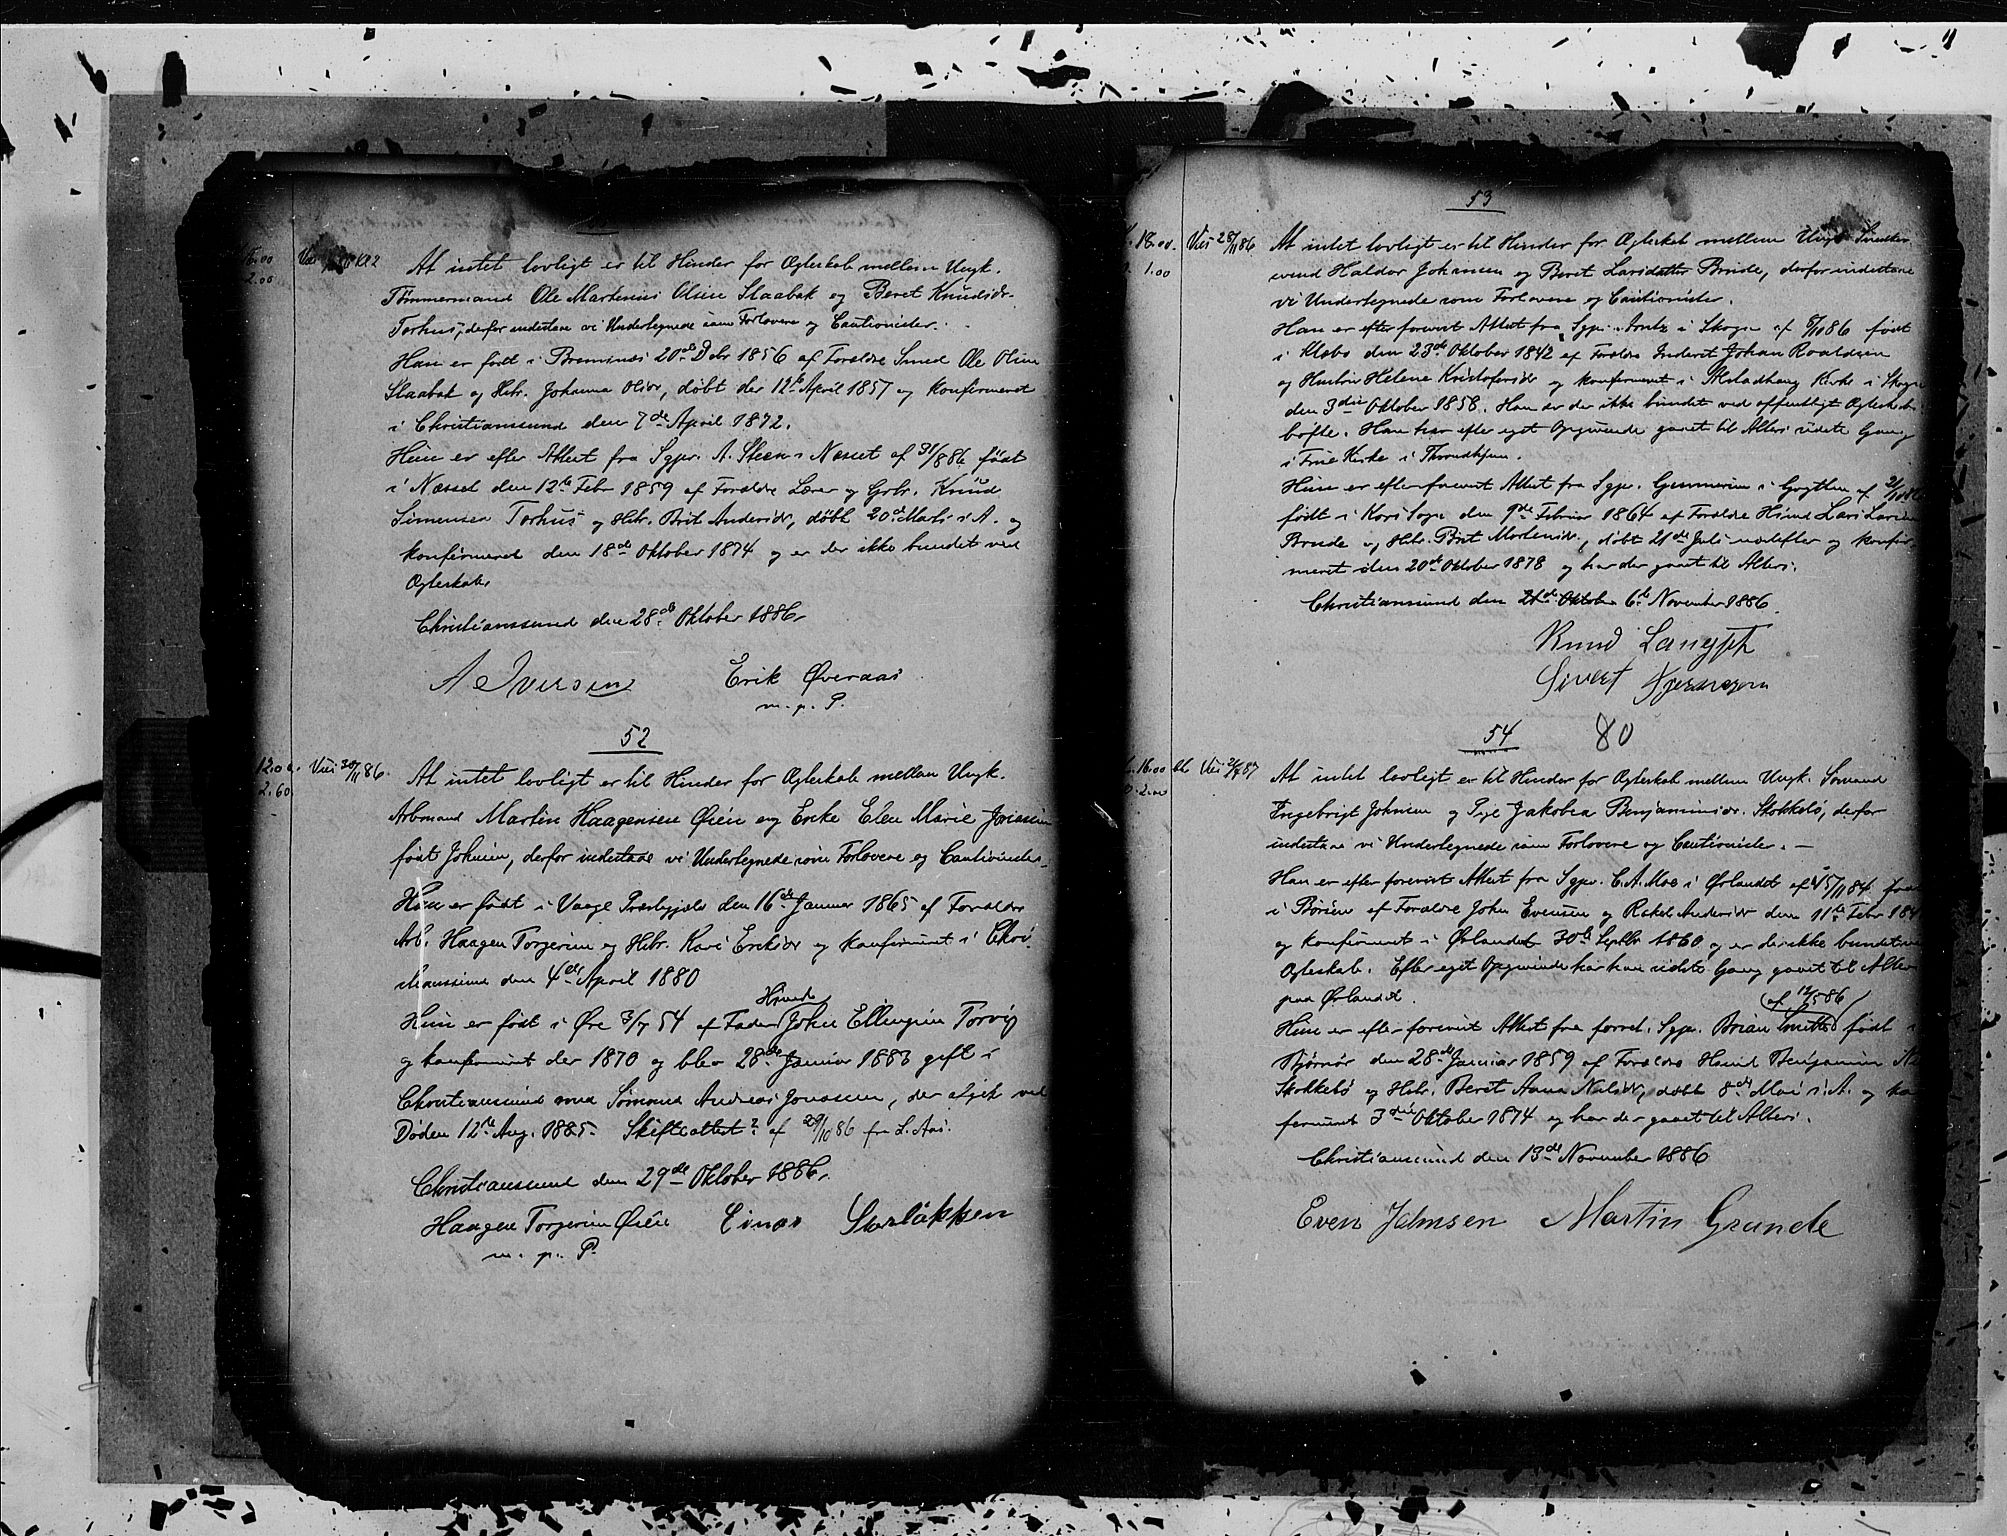 At intet lovligt er til Hinder for Ægteskab mellem Ungk.
Tømmermand Ole Martenius Olsen Slaabak og Beret Knudsdr.
Torhus, derfor indestaae vi Undertegnede som Forlovere og Cautionister.
Han er født i Bremsnes 20de Debr 1856 af Forældre Smed Ole Olsen
Slaabak og Hstr. Johanna Olsdr, døbt der 12te April 1857 og konfirmeret
i Christianssund den 7de April 1872.
Hun er efter Attest fra Sgpr. A. Steen i Nesset af 31/8 86 født
i Næsset den 12te Febr 1859 af Forældre Lærer og Grbr. Knud
Simensen Torhus og Hstr. Brit Andersdr, døbt 20de Marts s. A. og
konfirmeret den 18de Oktober 1874 og er der ikke bundet ved
Ægteskab.
Christianssund den 28de Oktober 1886.
A Iversen Erik Øveraas
m. p. P.
52
12.00 Viet 30/11 86. At intet lovligt er til Hinder for Ægteskab mellem Ungk.
2.60
Arbmand Martin Haagensen Øien og Enke Elen Marie Jonassen
født Johnsen, derfor indestaae vi Undertegnede som Forlovere og Cautionister.
Han er født i Vaage Præstegjeld den 16de Januar 1865 af Forældre
Arb. Haagen Torgersen og Hstr. Kari Eriksdr og konfirmeret i Chri
stianssund den 4de April 1880
Hun er født i Øre 3/7 54 af Fader Husmd John Ellingsen Torvig
og konfirmeret der 1870 og blev 28de Januar 1883 gift i
Christianssund med Sømand Andreas Jonassen, der afgik ved
Døden 12te Aug. 1885. Skifteattest af 29/10 86 fra L. Aas.
Christianssund den 29de Oktober 1886.
Haagen Torgersen Øien Einar Storløkken
m. p. P.
53
18.00 Viet 28/11 86 At intet lovligt er til Hinder for Ægteskab mellem Ungk.
1.00
svend Haldor Johansen og Beret Larsdatter Brude, derfor indestaae
vi Undertegnede som Forlovere og Cautionister.
Han er efter forevist Attest fra Sgpr. Arntz i Skogn af /10 86 født
i Klæbo den 23de Oktober 1842 af Forældre Inderst Johan Roaldsen
og Hustru Helene Kristofersdr og konfirmeret i Kirke i Skogn
den 3die Oktober 1858. Han er der ikke bundet ved offentligt Ægteskabs
løfte. Han har efter eget Opgivende gaaet til Alters sidste Gang
i Frue Kirke i Throndhjem.
Hun er efter forevist Attest fra Sgpr. i af 2/10 86
født i Kors Sogn den 9de Februar 1864 af Forældre Husmd Lars Larsen
Brude og Hstr. Brit Mortensdr, døbt 21de Juli næstefter og konfir
meret den 20de Oktober 1878 og har der gaaet til Alters.
Christianssund den 21de Oktober 6te November 1886.
Knud Langseth
Sivert
54 80
16.00 Viet 2/ 87 At intet lovligt er til Hinder for Ægteskab mellem Ungk. Sømand
2.00
Ingebrigt Johnsen og Pige Jakobea Benjaminsdr. Stokkebø, derfor
indestaae vi Undertegnede som Forlovere og Cautionister.
Han er efter forevist Attest fra Sgpr. C. A. Moe i Ørlandet af 15/11 84 født
i Børsen af Forældre John Evensen og Rakel Andersdr den 11te Febr 184
og konfirmeret i Ørlandet 30te Septbr 1860 og er der ikke bundet ved
Ægteskab. Efter eget Opgivende har han sidste Gang gaaet til Alters
paa Ørlandet.
Hun er efter forevist Attest fra forret. Sgpr. Brian Smitt (af 12/5 86) født i
Stjørnør den 28de Januar 1859 af Forældre Husmd Benjamin
Stokkebø og Hstr. Beret Anna Nilsdr, døbt 8de Mai s. A. og kon
fermeret 3die Oktober 1874 og har der gaaet til Alters.
Christianssund den 13de November 1886
Even Johnsen Martin Grande